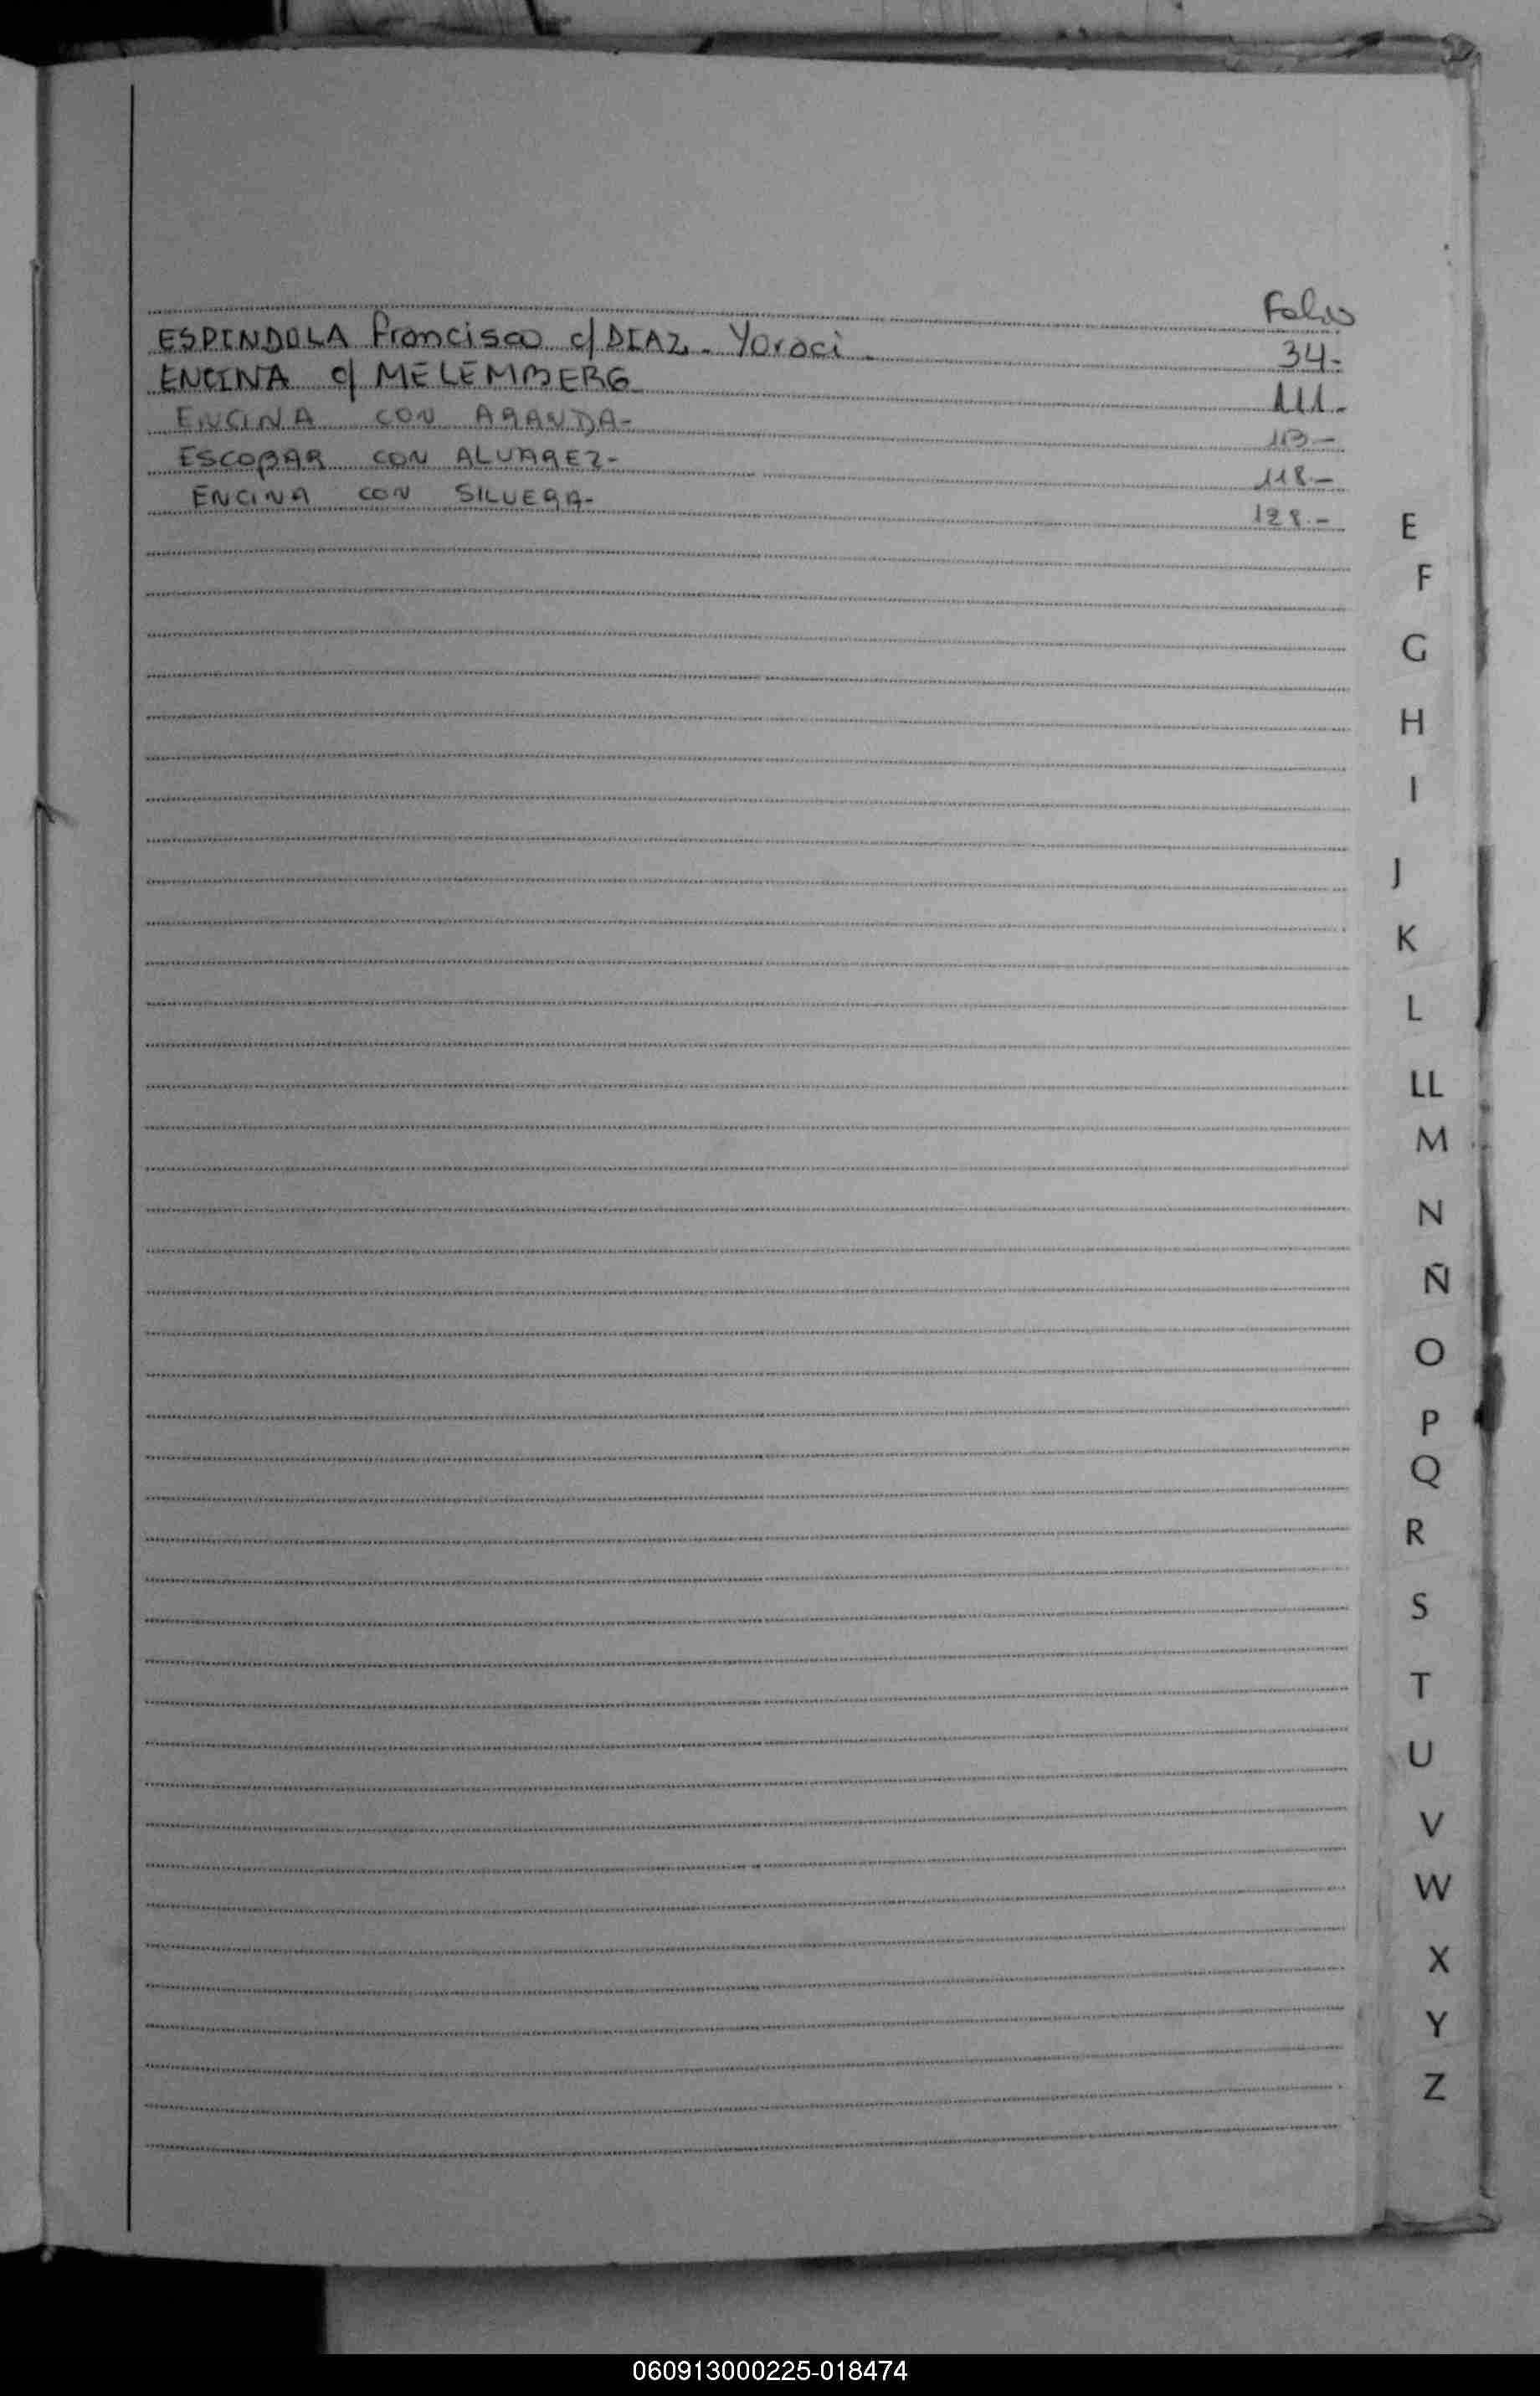 Folios
ESPINDOLA Francisco c/ DIAZ. Yoraci. 34.-
ENCINA c/ MELEMBERG 111.-
ENCINA CON ARANDA- 113.-
ESCOBAR CON ALVAREZ- 118.-
ENCINA CON SILVERA- 128.-
E
F
G
H
I
J
K
L
LL
M
N
Ñ
O
P
Q
R
S
T
U
V
W
X
Y
Z
060913000225-018474